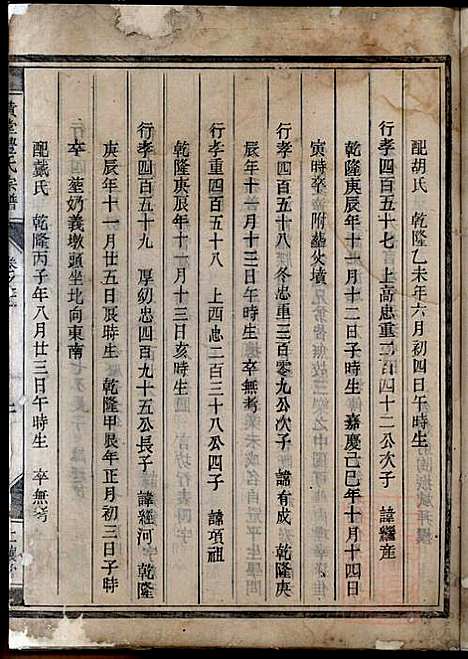 配胡氏 乾隆乙未年六月初四日午時生
行孝四百五十七 上高忠重二百四十二公次子 諱繼產
乾隆庚辰年十一月十二日子時生 嘉慶己巳年十月十四日
寅時卒 附葬火墳
行孝四百五十八 冬忠重三百零九公次子 諱有成 乾隆庚
辰年十一月十三日午時生 卒無考
行孝重四百五十八 上西忠二百三十八公四子 諱項祖
乾隆庚辰年十一月十三日亥時生
行孝四百五十九 厚幼忠四百九十五公長子 諱經河 乾隆
庚辰年十一月廿五日辰時生 乾隆甲辰年正月初三日子時
卒 葬奶義墩頭坐北向東南
配戴氏 乾隆丙子年八月廿三日午時生 卒無考
氏宗譜